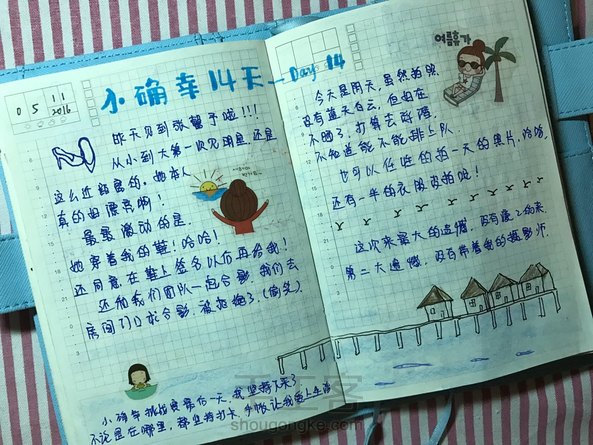 小确幸14天—Day 14
0 5 11
2016
昨天见到张馨予啦!!!
从小到大第一次见明星,还是
这么近距离的,她本人
真的超漂亮啊!
最最激动的是,
她穿着我的鞋!哈哈!
还同意在鞋上签名以后再给我!
还和我们团队一起合影,我们去
房间门口求合影,被拒绝了,(偷笑)
小确幸挑战赛最后一天,我坚持下来了
不论是在哪里,都坚持打卡,手帐让我爱上生活
여름휴가
今天是阴天,虽然拍照
没有蓝天白云,但好在
不晒了,打算去浮潜,
不知道能不能排上队.
也可以任性的拍一天的照片,哈哈,
还有一半的衣服没拍呢!
这次来最大的遗憾,没有瘦了的来,
第二大遗憾,没有带着我的摄影师.
shougongke.com